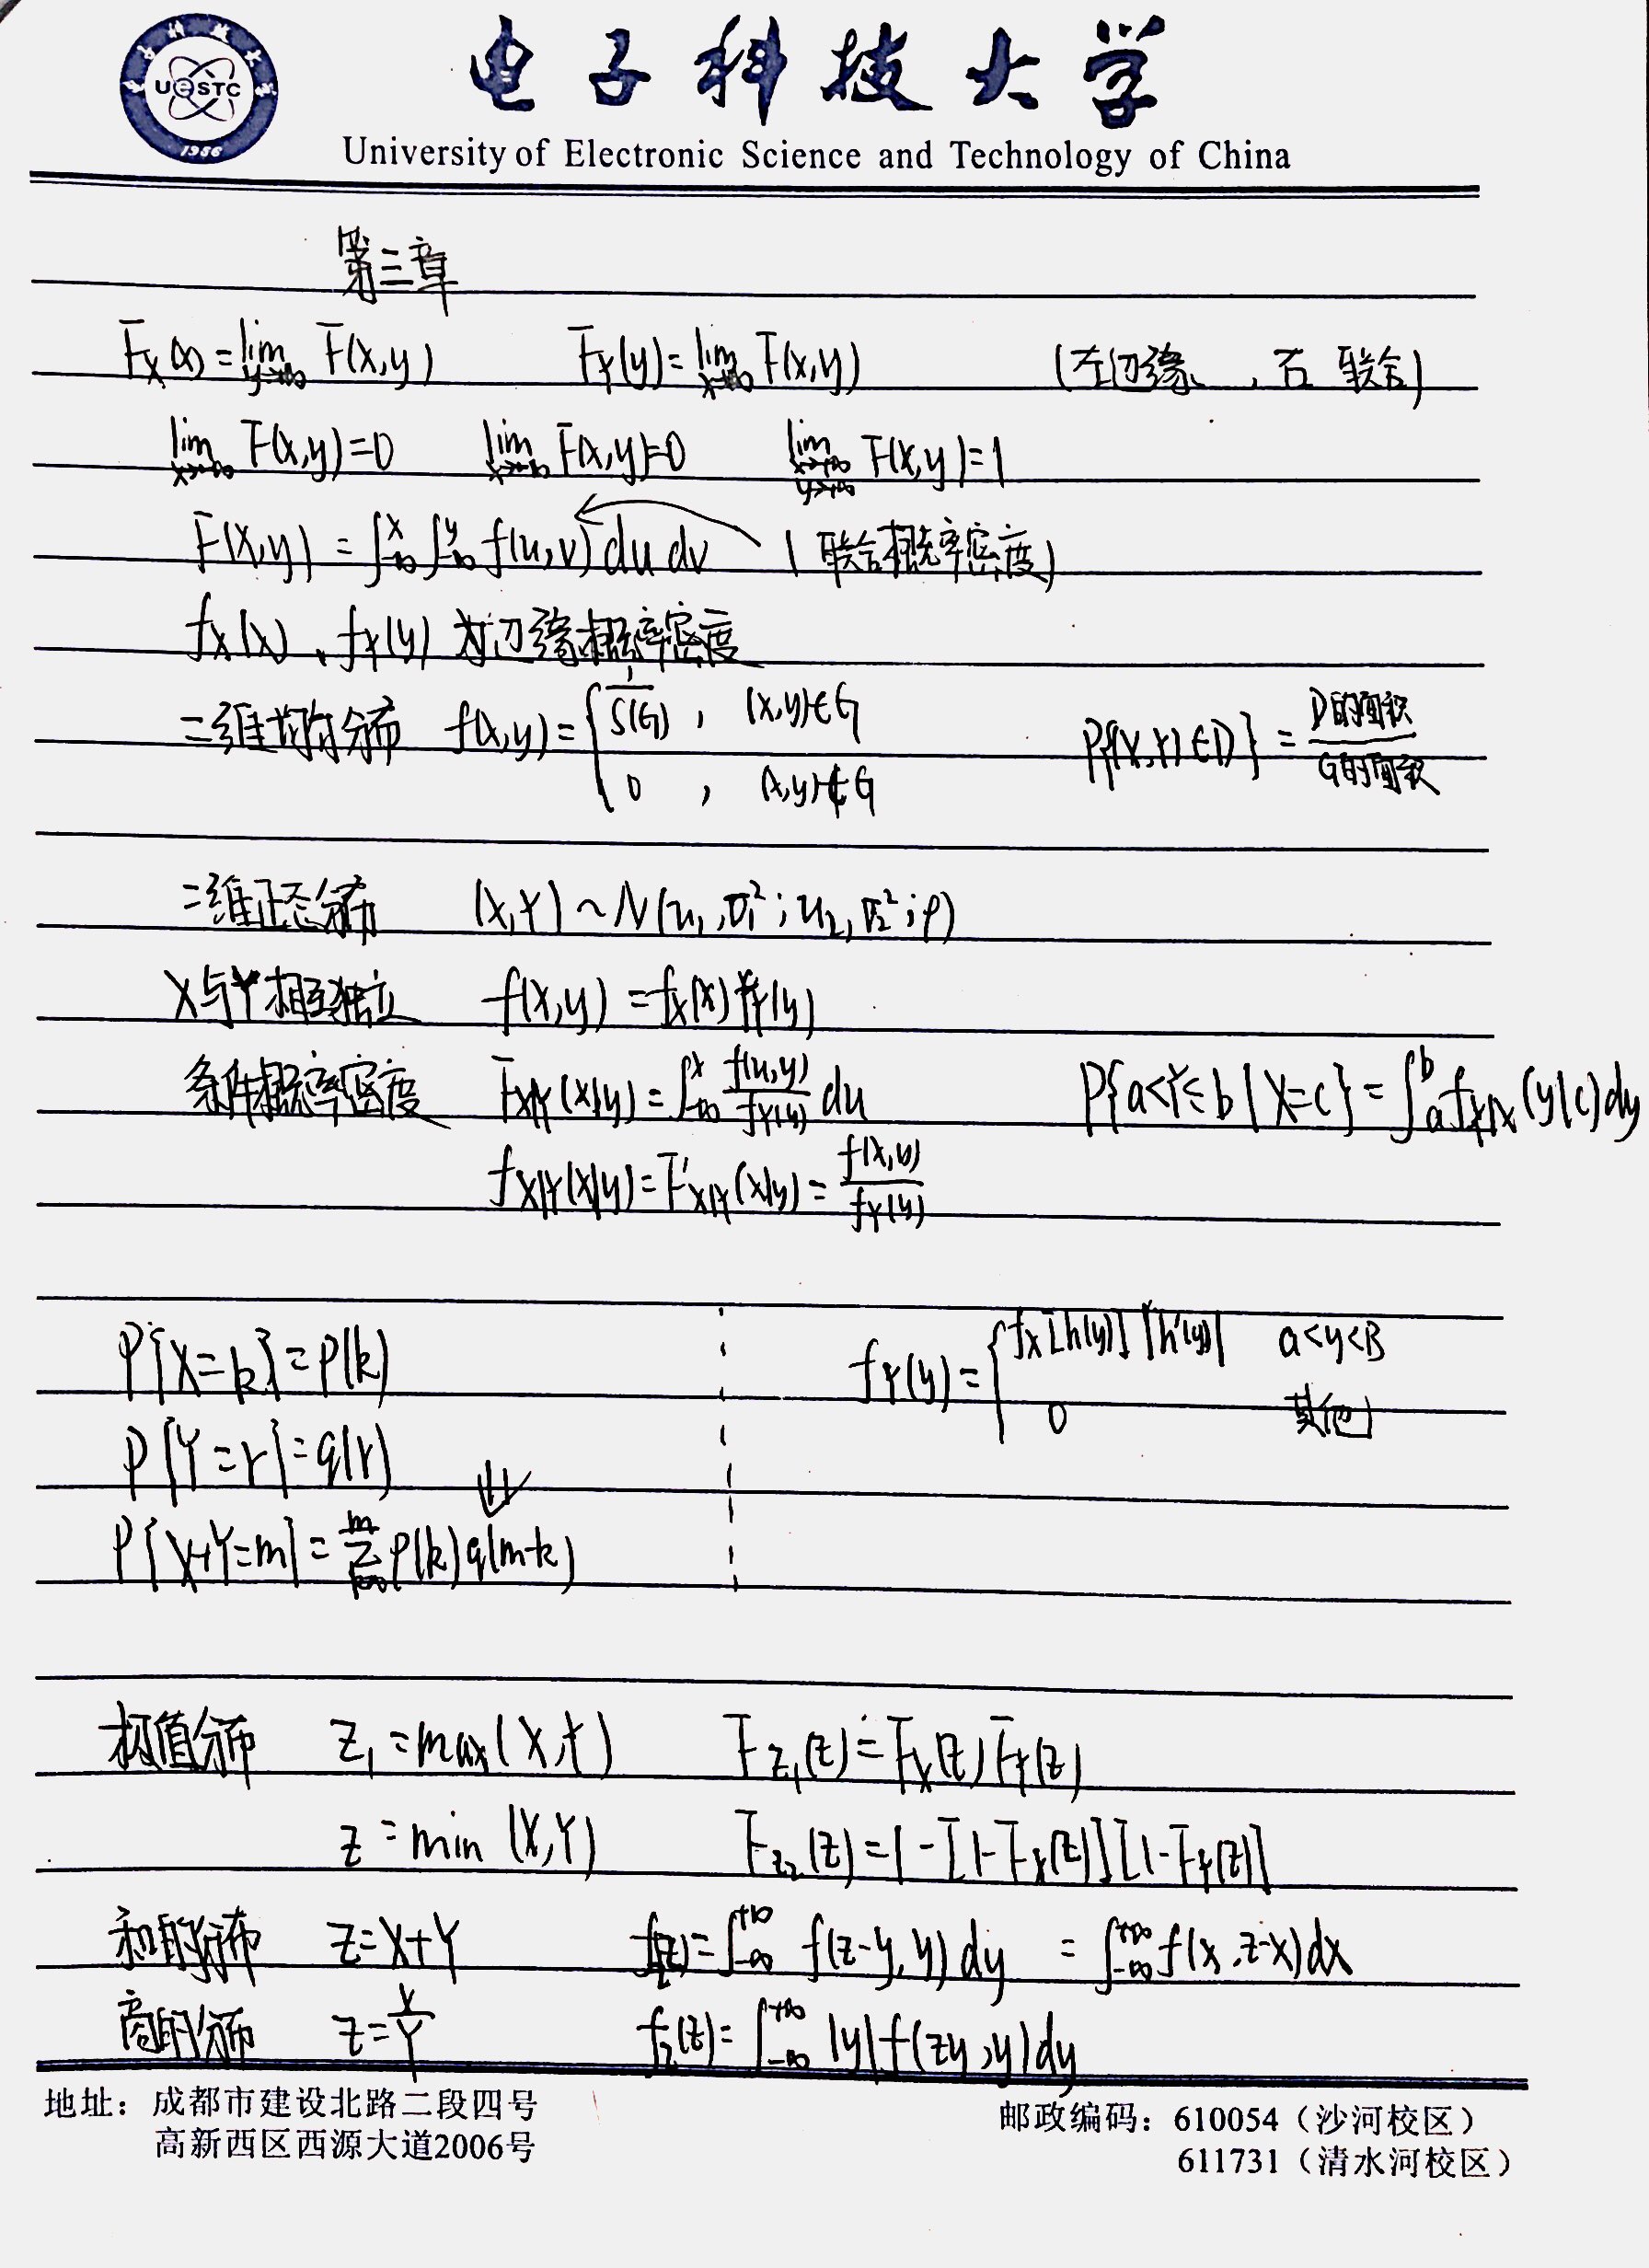 UESTC
1956
电子科技大学
University of Electronic Science and Technology of China
第三章
F_X(x)=lim_{y→+∞} F(x,y) F_Y(y)=lim_{x→+∞} F(x,y) (左边缘、,右 联合)
lim_{x→-∞} F(x,y)=0 lim_{x→-∞} F(x,y)=0 lim_{x→+∞ y→+∞} F(x,y)=1
F(x,y) = ∫_{-∞}^{x}∫_{-∞}^{y} f(u,v) du dv (联合概率密度)
f_X(x)、f_Y(y) 为边缘概率密度
二维均匀分布 f(x,y)={ 1/S(G) , (x,y)∈G P{(X,Y)∈D} = D的面积/G的面积
0 , (x,y)∉G
二维正态分布 (X,Y)~N(u₁,σ₁²;u₂,σ₂²;ρ)
X与Y相互独立 f(x,y)=f_X(x)f_Y(y)
条件概率密度 F_{X|Y}(x|y)=∫_{-∞}^{x} f(u,y)/f_Y(y) du P{a<Y≤b|X=c}=∫_a^b f_{Y|X}(y|c)dy
f_{X|Y}(x|y)=F'_{X|Y}(x|y)=f(x,y)/f_Y(y)
P{X=k}=p(k) f_Y(y)={ f_X[h(y)]|h'(y)| a<y<B
0 其他
P{Y=r}=q(r)
P{X+Y=m}=∑_{k=0}^{m} p(k)q(m-k)
极值分布 Z₁=max(X,Y) F_{Z₁}(z)=F_X(z)F_Y(z)
Z=min(X,Y) F_{Z₂}(z)=1-[1-F_X(z)][1-F_Y(z)]
和的分布 Z=X+Y f_Z(z)=∫_{-∞}^{+∞} f(z-y,y)dy = ∫_{-∞}^{+∞} f(x,z-x)dx
商的分布 Z=X/Y f_Z(z)=∫_{-∞}^{+∞} |y|f(zy,y)dy
地址：成都市建设北路二段四号 邮政编码：610054（沙河校区）
高新西区西源大道2006号 611731（清水河校区）